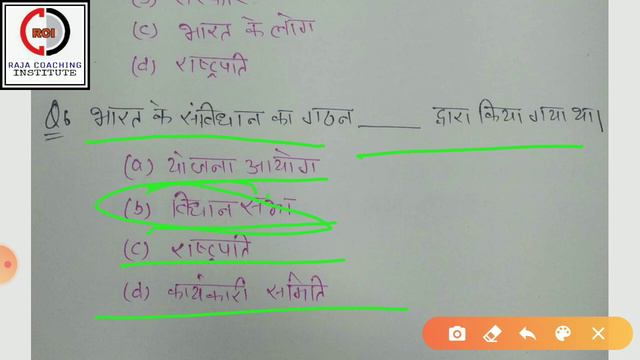 (b) सरकार
ROI
RAJA COACHING
INSTITUTE
(c) भारत के लोग
(d) राष्ट्रपति
Q6 भारत के संविधान का गठन ____ द्वारा किया गया था।
(a) योजना आयोग
(b) विधान सभा
(c) राष्ट्रपति
(d) कार्यकारी समिति